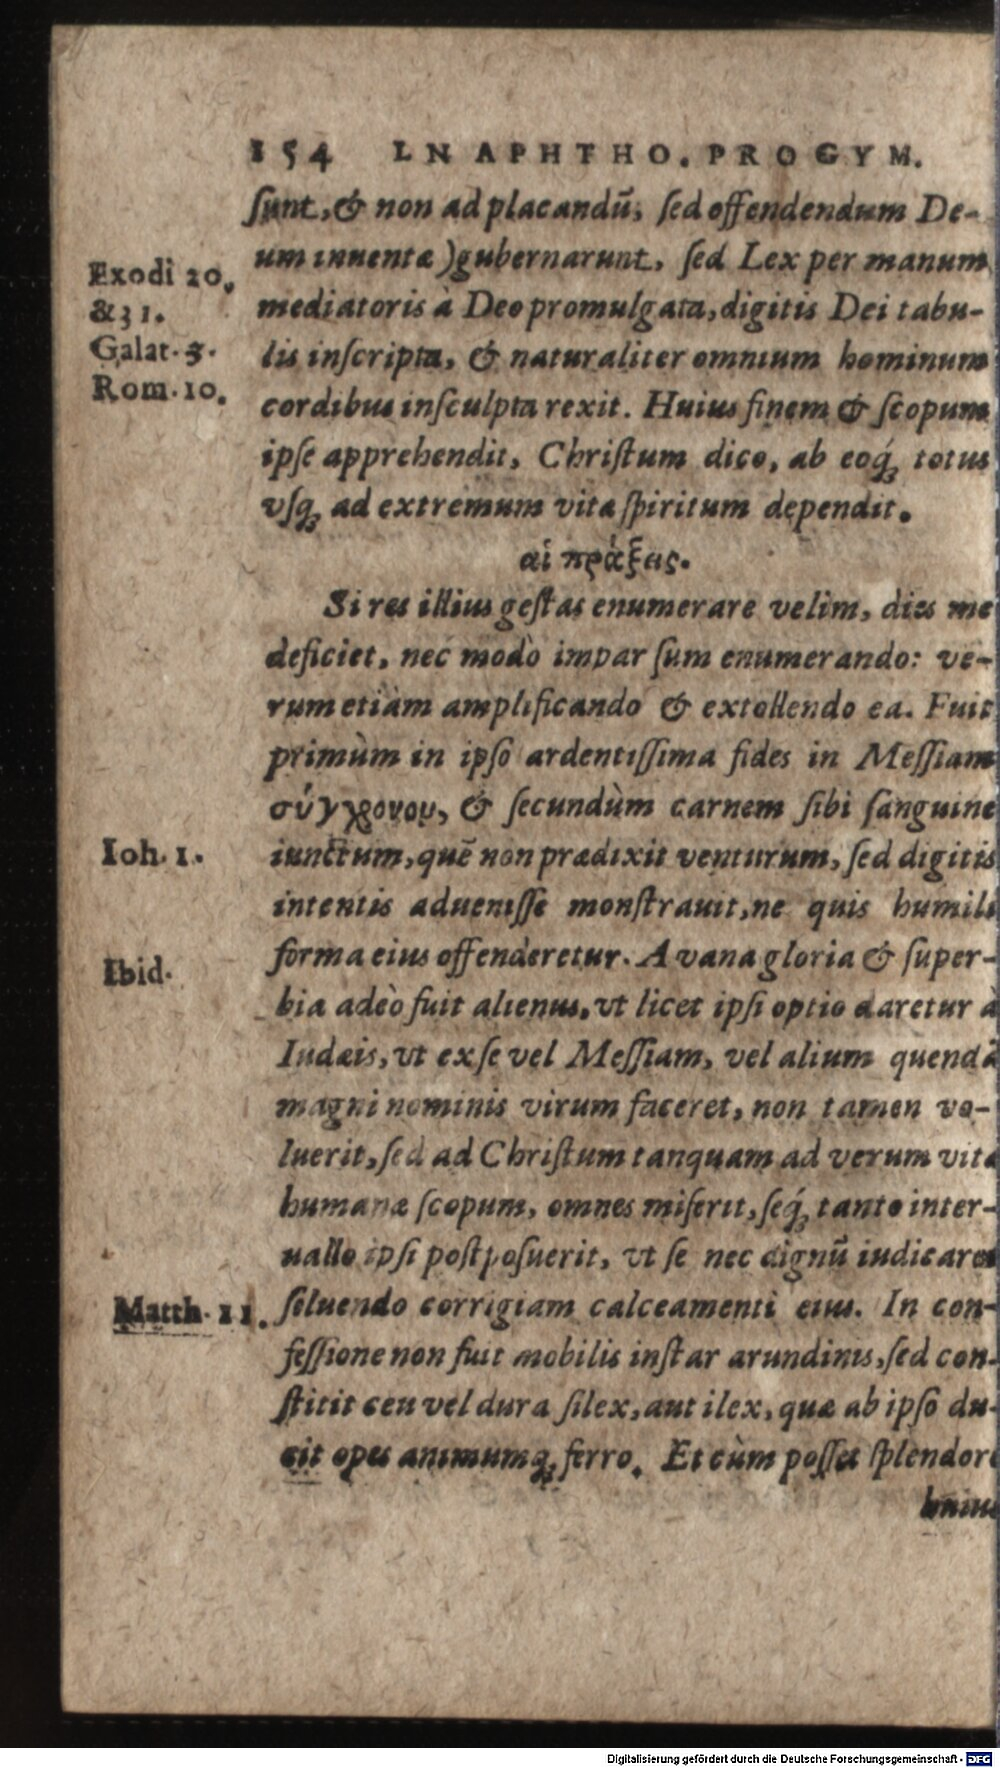 154 LN APHTHO. PROGYM.
ſunt, & non ad placandū, ſed offendendum De-
um inuentæ) gubernarunt, ſed Lex per manum
Exodi 20.
&31.
Galat. 3.
Rom. 10.
mediatoris à Deo promulgata, digitis Dei tabu-
lis inſcripta, & naturaliter omnium hominum
cordibus inſculpta rexit. Huius finem & ſcopum
ipſe apprehendit, Chriſtum dico, ab eoq́ꝫ totus
vſqꝫ ad extremum vitæ ſpiritum dependit.
αἱ πράξεις.
Si res illius geſtas enumerare velim, dies me
deficiet, nec modò impar ſum enumerando: ve-
rum etiàm amplificando & extollendo ea. Fuit
primùm in ipſo ardentiſſima fides in Meſſiam
σύγχρονον, & ſecundùm carnem ſibi ſanguine
Ioh. 1.
iunctum, quē non prædixit venturum, ſed digitis
intentis adueniſſe monſtrauit, ne quis humili
forma eius offenderetur. A vana gloria & ſuper-
Ibid.
bia adeò fuit alienus, vt licet ipſi optio daretur à
Iudæis, vt ex ſe vel Meſſiam, vel alium quendā
magni nominis virum faceret, non tamen vo-
luerit, ſed ad Chriſtum tanquam ad verum vitæ
humanæ ſcopum, omnes miſerit, ſeq́ꝫ tanto inter-
uallo ipſi poſtpoſuerit, vt ſe nec dignū iudicaret
Matth. 11.
ſoluendo corrigiam calceamenti eius. In con-
feſſione non fuit mobilis inſtar arundinis, ſed con-
ſtitit ceu vel dura ſilex, aut ilex, quæ ab ipſo du-
cit opes animumqꝫ ferro. Et cùm poſſet ſplendore
huius
Digitalisierung gefördert durch die Deutsche Forschungsgemeinschaft - DFG